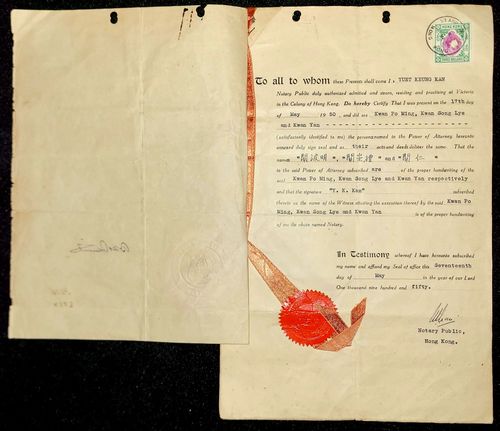 HONG KONG
To all to whom these Presents shall come I, YUET KEUNG KAN
Notary Public duly authorized admitted and sworn, residing and practising at Victoria
in the Colony of Hong Kong. Do hereby Certify That I was present on the 17th
day of May 1950, and did see Kwan Po Ming, Kwan Song Lye
and Kwan Yan
(satisfactorily identified to me) the persons named in the Power of Attorney hereunto
annexed duly sign seal and as their acts and deeds deliver the same. That the
names
to the said Power of Attorney subscribed are of the proper handwriting of the
said Kwan Po Ming, Kwan Song Lye and Kwan Yan respectively
and that the signature "Y. K. Kan" subscribed
thereto as the name of the Witness attesting the execution thereof by the said Kwan Po
Ming, Kwan Song Lye and Kwan Yan is of the proper handwriting
of me the above named Notary.
In Testimony whereof I have hereunto subscribed
my name and affixed my Seal of office this Seventeenth
day of May in the year of our Lord
One thousand nine hundred and fifty.
Notary Public,
Hong Kong.